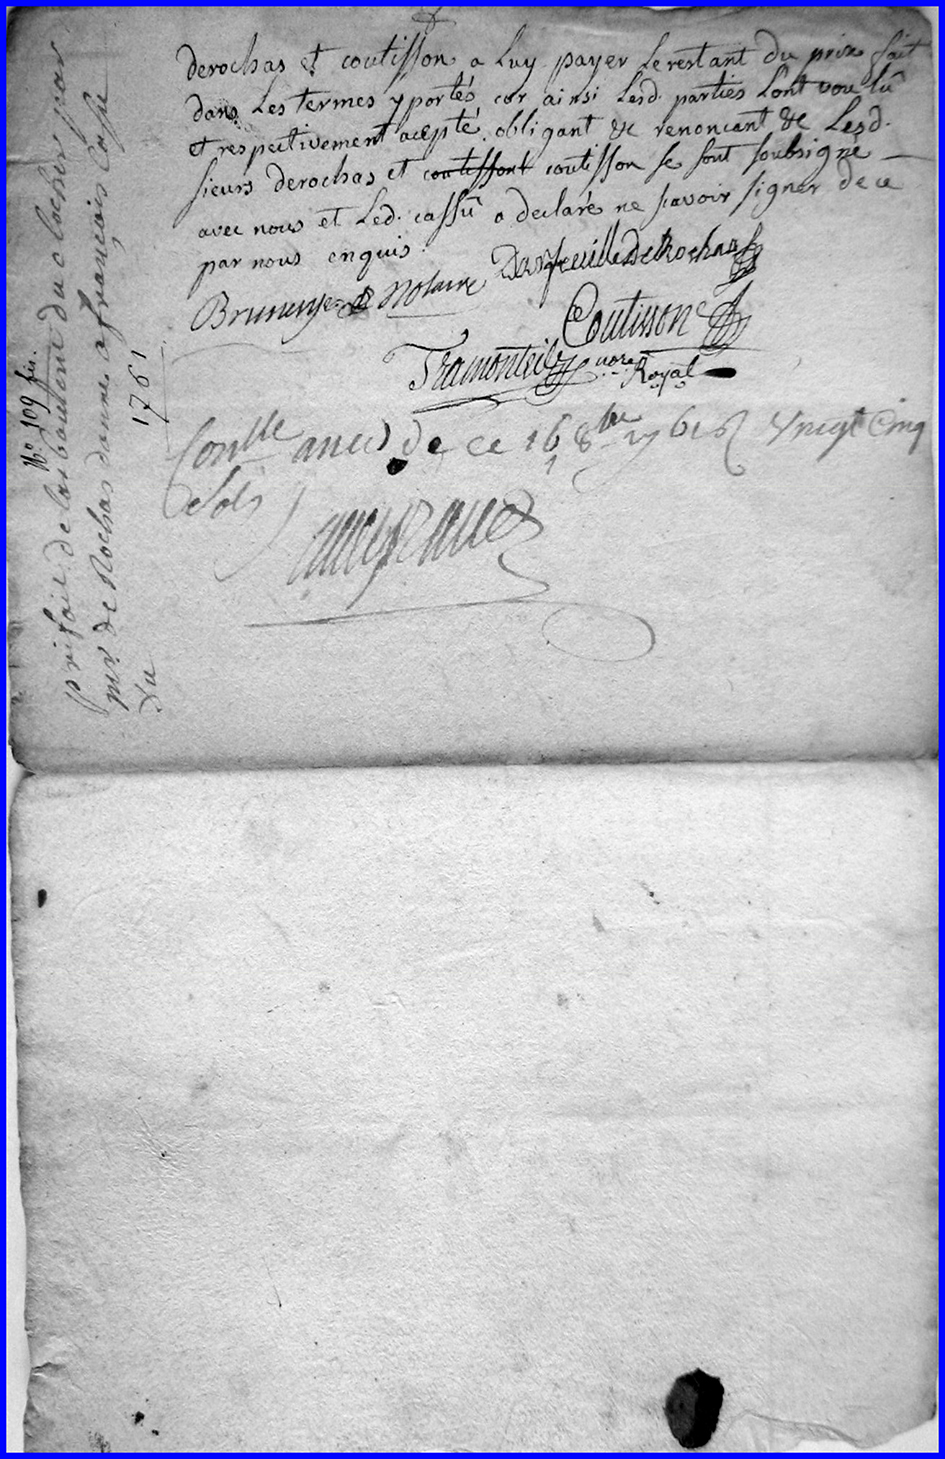 derochas et coutisson a luy payer le restant du prix fait
dans les termes y portés car ainsi lesd. parties l'ont voulû
et respectivement acepté obligant &c renoncant &c Lesd.
sieurs derochas et coutissont coutisson se sont soubsigné
avec nous et led. cassû a declaré ne sçavoir signer de ce
par nous enquis.
Darfeuille DeRochas
Brunerye Notaire
Coutisson
Tramonteil nore
Royal
Conlle de ce 16 8bre 1761 Vingt Cinq
sols
No. 109
prifait de la du clocher par
mr. de Rochas donne a françois Cassu
du 1761